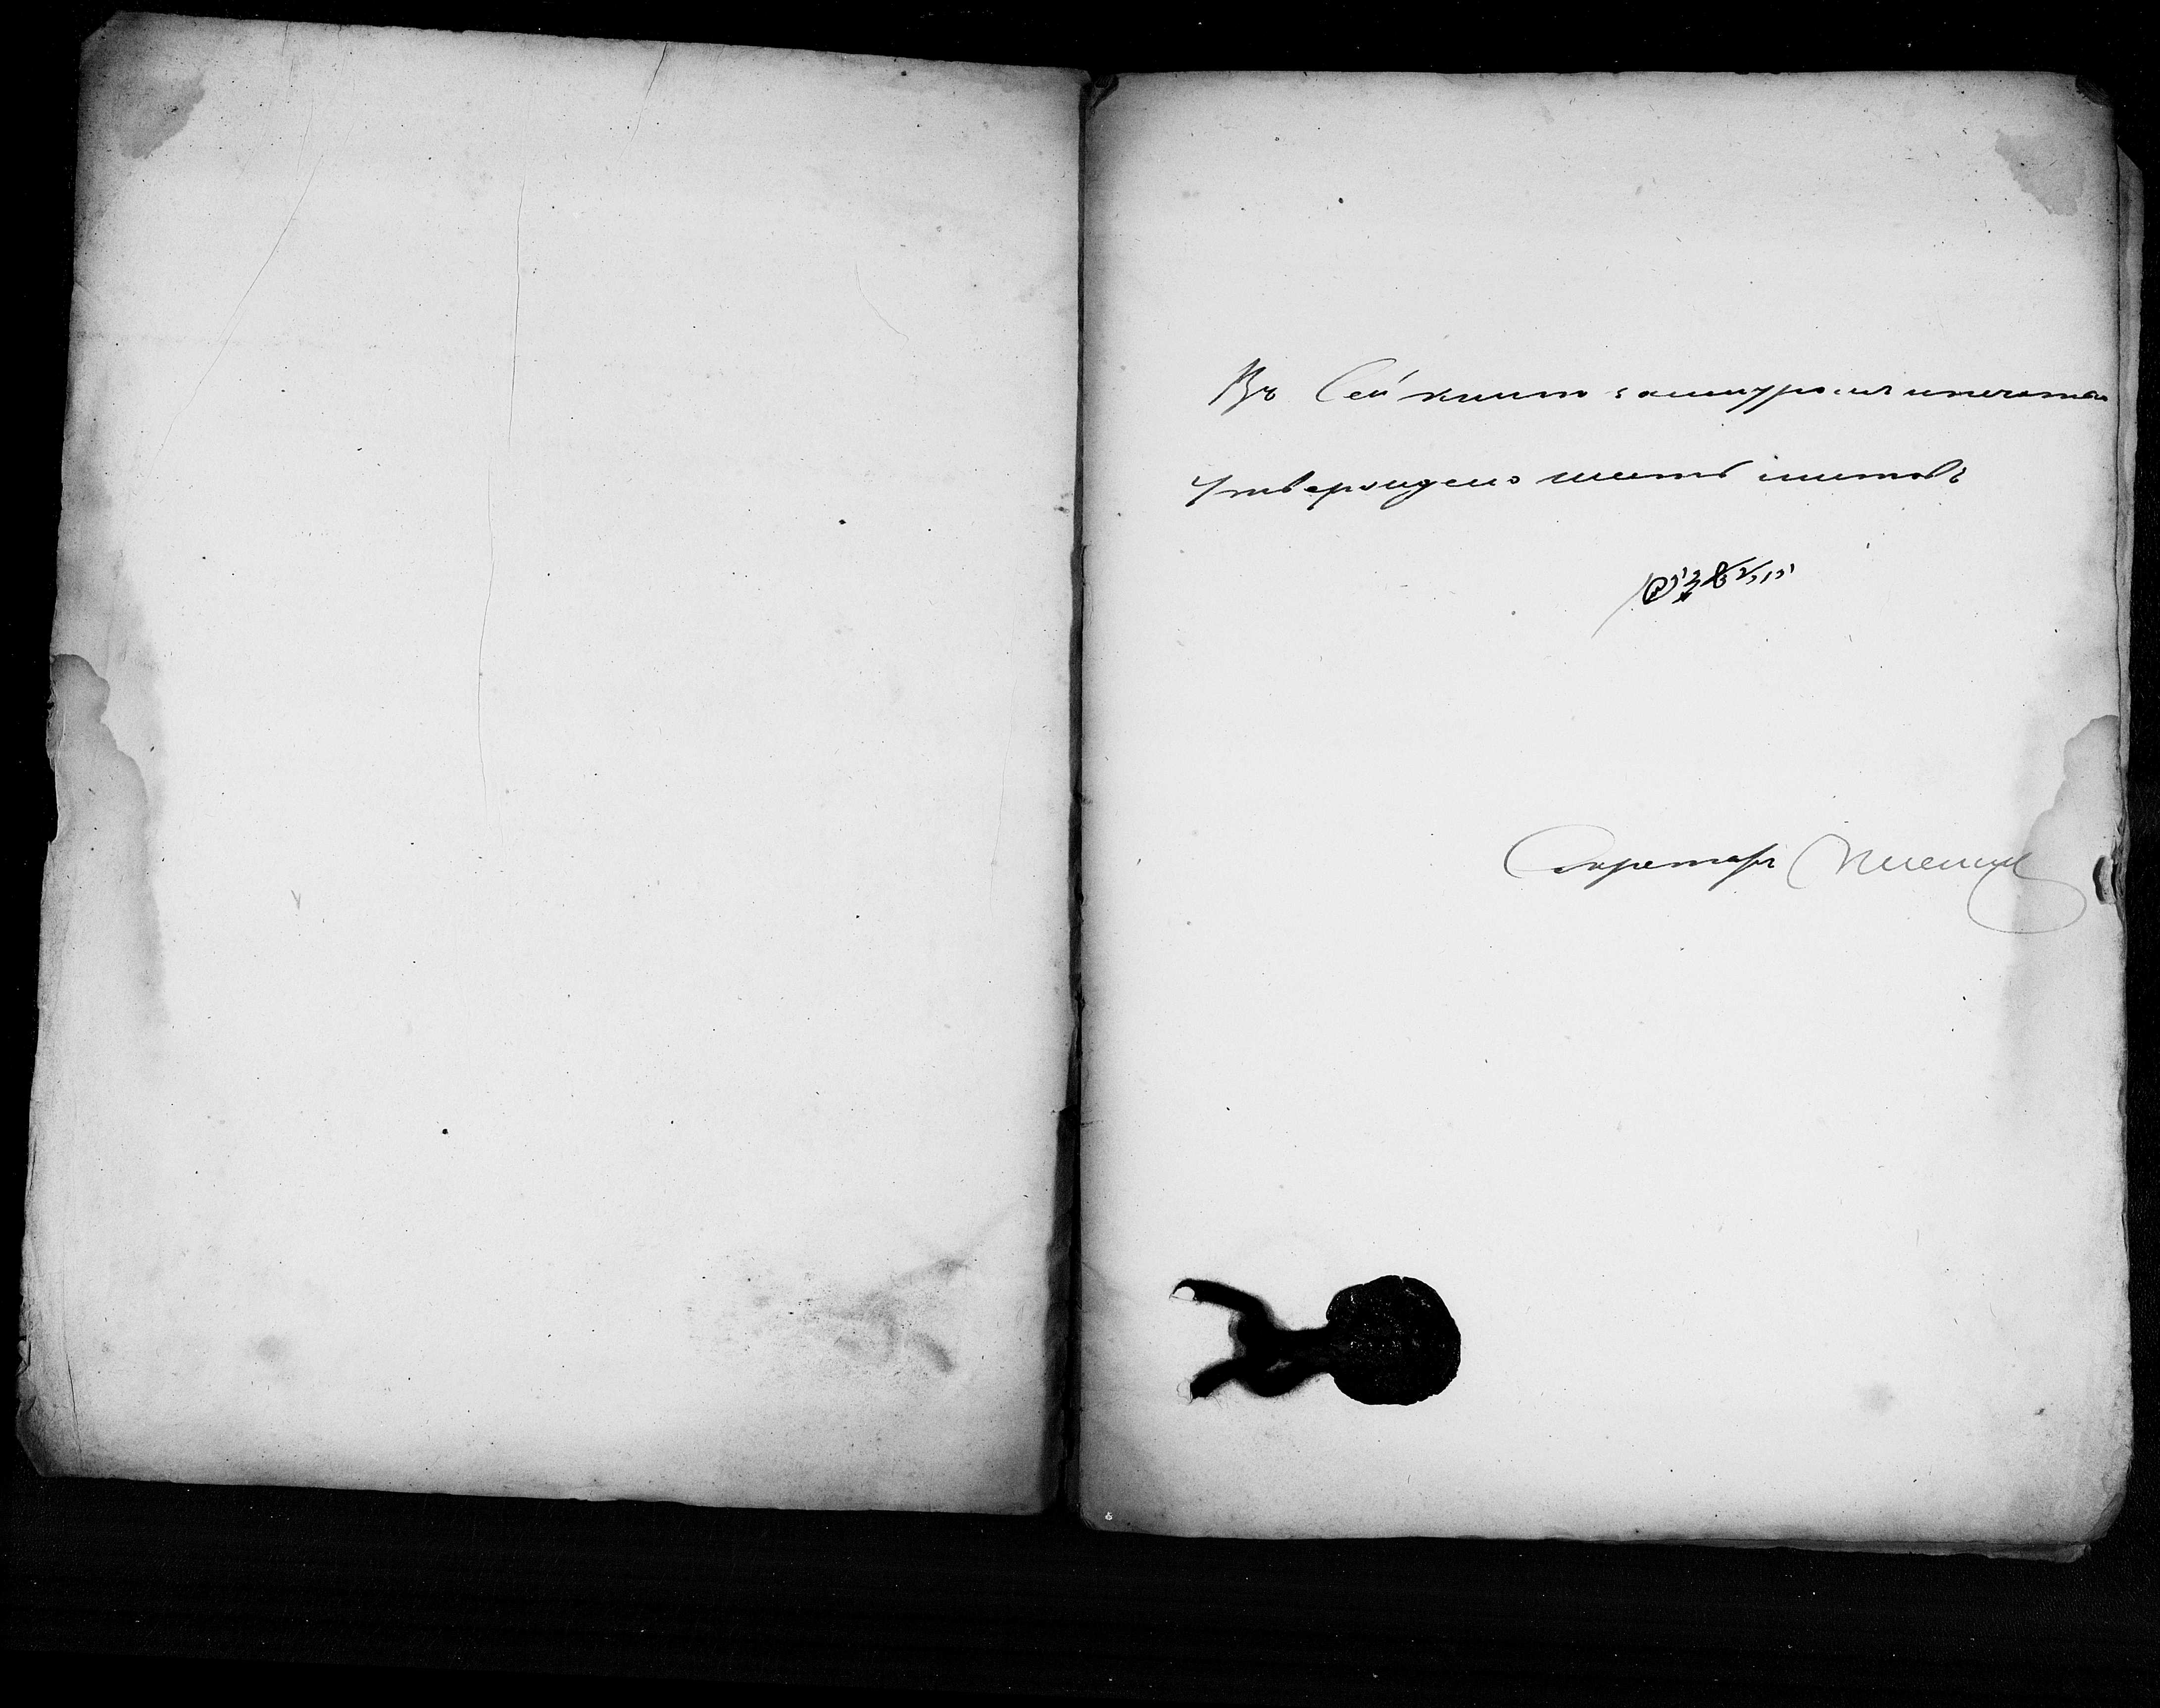 Въ Сей книгѣ зашнуров. и печатью
утверждено шесть листовъ
Секретарь